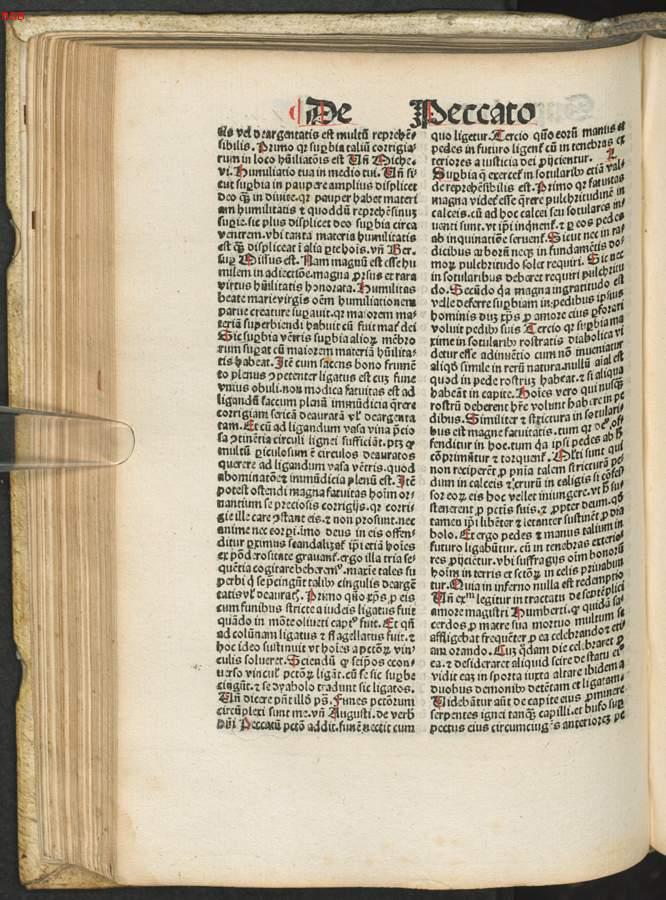 De Peccato
sibilis. Primo qr suꝑbia taliũ corrigia
rum in loco hũiliatõis est Uñ Miche.
vi. Humiliatio tua in medio tui. Uñ si
cut suꝑbia in paupere amplius displicet
deo q̃ in diuite. qr pauper habet materi
am humilitatis ⁊ quoddũ reprehẽsiuuꝫ
suꝑbie. sic plus displicet deo suꝑbia circa
ventrem. vbi tanta materia humilitatis
est q̃ displiceat ĩ alia ꝑte hoĩs. vñ Ber.
suꝑ Missus est. Nam magnũ est esse hu
milem in adiectiõe. magna ꝓrsus et rara
virtus hũilitas honorata. Humilitas
beate marie virgis oẽm humiliationem
parue creature suꝑauit. qr maiorem ma-
teriã superbiendi habuit cũ fuit mat̃ dei
Sic suꝑbia vẽtris suꝑbia alioꝝ mẽbro
rum suꝑat cũ maiorem materiã hũilita-
tis habeat. Itẽ cum saccus bono frumẽ
to plenus ꝯpetenter ligatus est cuꝫ fune
vnius obuli. non modica fatuitas est ad
ligandũ saccum plenũ immũdicia q̃rere
corrigiam sericã deauratã vꝉ deargenta
tam. Et cũ ad ligandum vasa vina p̃cio
sa ꝯtinẽtia circuli lignei sufficiãt. ptꝫ ꝙ
multũ ꝑiculosum ẽ circulos deauratos
querere ad ligandum vasa vẽtris. quod
abominatõe ⁊ immũdicia plenũ est. Itẽ
potest ostendi magna fatuitas hoĩm or-
nantium se preciosis corrigijs. qr corri-
gie ille eis ꝯstant eis. ⁊ non prosunt. nec
anime nec corꝑi. imo deus in eis offen-
ditur ꝓximus scandalizat̃ ip̃i etiã hoĩes
ex põderositate grauant̃. ergo illa tria se-
quẽtia cogitare deberent. maxie tales su
perbi q̃ se p̃cingũt talibꝰ cingulis deargẽ
tatis vꝉ deaurat̃. Primo qũo xp̃s ꝓ eis
cum funibus stricte a iudeis ligatus fuit
quãdo in mõte oliueti captꝰ fuit. Et qñ
ad colũnam ligatus ⁊ flagellatus fuit. ⁊
hoc ideo sustinuit vt hoĩes a pctõꝝ vin-
culis solueret. Sciendũ ꝙ seip̃os econ-
uerso vinculꝭ pctõꝝ ligãt. cũ se sic suꝑbe
cingũt. ⁊ se dyabolo tradunt sic ligatos.
Uñ dicere pñt illð pš. Funes pctõrum
circũplexi sunt me. vñ Augusti. de verb
dñi Peccatũ pctõ addit. funẽ nectit cum
quo ligetur. Tercio qũo eorũ manus et
pedes in futuro ligent̃ cũ in tenebras ex
teriores a iusticia dei ꝓijcientur.
Suꝑbia q̃ exercet̃ in sotularibꝰ etiã val-
de reprehẽsibilis est. Primo qr fatuitas
magna videt̃ esse q̃rere pulchritudinẽ in
calceis. cũ ad hoc calcei seu sotulares in-
uenti sunt. vt ip̃i inq̃nent̃. ⁊ ꝑ eos pedes
ab inquinatiõe seruent̃. Sicut nec in ra-
dicibus arborũ neqꝫ in fundamẽtis do-
moꝝ pulchritudo solet requiri. Sic nec
in sotularibus deberet requiri pulchritu
do. Secũdo q̃a magna ingratitudo est
velle deferre suꝑbiam in pedibus ip̃sius
hominis cuiꝫ xp̃s ꝓ amore eius ꝑforari
voluit pedibꝰ suis Tercio qr suꝑbia ma
xime in sotularibꝰ rostratis diabolica vi
detur esse adinuẽtio cum nõ inueniatur
aliqð simile in rerũ natura. nullũ aĩal est
quod in pede rostruꝫ habeat. ⁊ si aliqua
habeãt in capite. Hoĩes vero qui nusqꝫ
rostrũ deberent hr̃e volunt habere in pe
dibus. Similiter ⁊ strictura in sotulari-
bus est magne fatuitatis. tum qr deꝰ of-
fenditur in hoc. tum q̃a ipsi pedes ab hͦ
cõprimũtur ⁊ torquent̃. Multi sunt qui
non reciperẽt ꝓ pñia talem stricturã pe-
dum in calceis ⁊ crurũ in caligis si cõfes
sor eoꝝ eis hoc vellet iniungere. vt hͦ su-
stenerent ꝓ pctis suis. ⁊ ꝓpter deum. qð
tamen ip̃i libẽter ⁊ letanter sustinẽt ꝓ dia
bolo. Et ergo pedes ⁊ manus talium in
futuro ligabũtur. cũ in tenebras exterio-
res ꝓijcientur. vbi suffragijs oĩm honorũ
hoĩm in terris et sctõꝝ in celis priuabun
tur. Quia in inferno nulla est redemptio
Uñ exᵐ legitur in tractatu de septẽplici
amore magistri Humberti. ꝙ quidã sa-
cerdos ꝓ matre sua mortuo multum se
affligebat frequẽter ꝓ ea celebrando ⁊ eti
am orando. Cuꝫ q̃dam die celebraret ꝓ
ea. ⁊ desideraret aliquid scire de statu eiꝰ
vidit eaꝫ in sporta iuxta altare ibidem a
duobus demonibꝰ detẽtam et ligatam.
Uidebãtur aũt de capite eius ꝓminere
serpentes ignei tanqꝫ capilli. et bufo suꝑ
pectus eius circumcingẽs anteriores pe